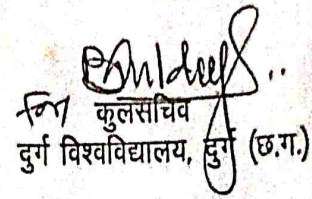 कुलसचिव
दुर्ग विश्वविद्यालय, दुर्ग (छ.ग.)